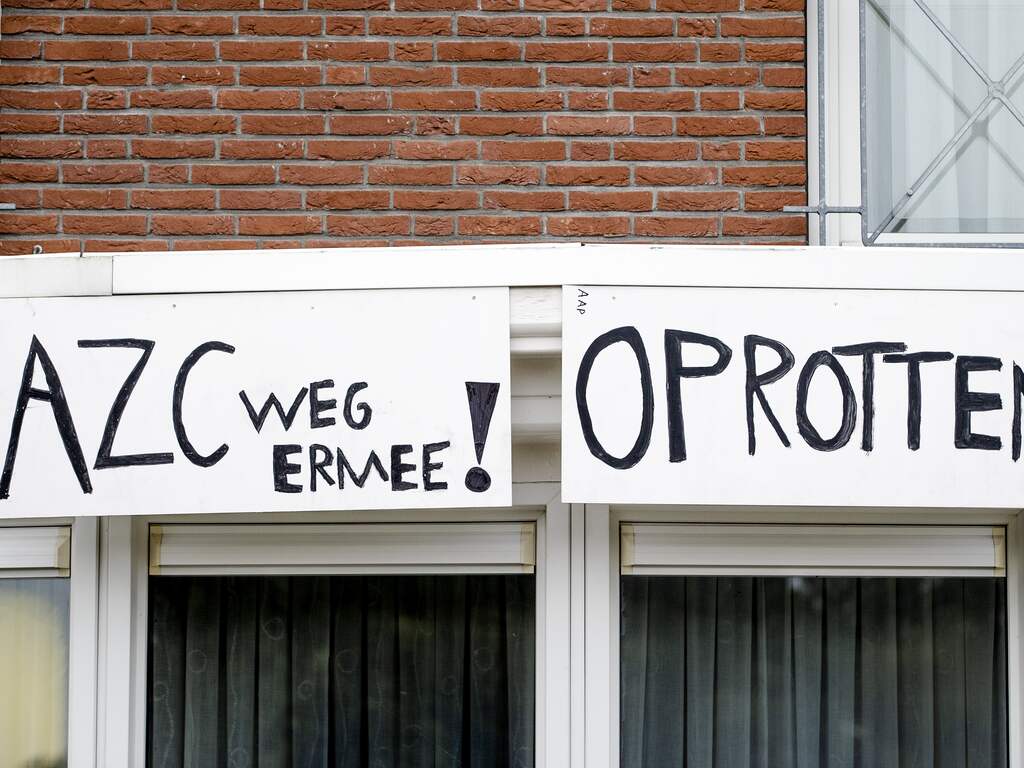 AZC WEG
ERMEE!
AAP
OPROTTEN